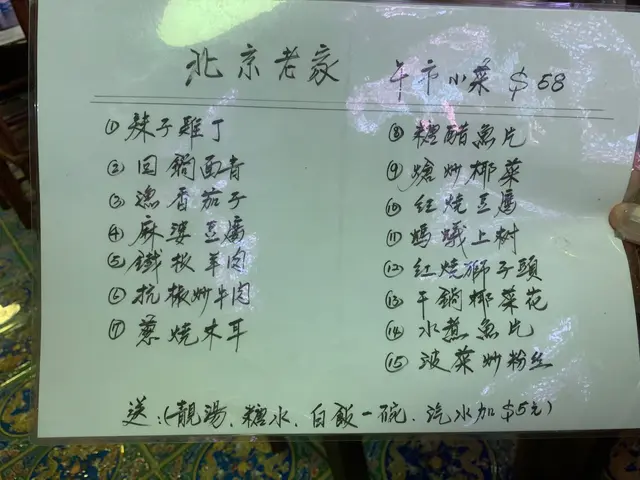 北京老家 午市小菜 $58
① 辣子雞丁
② 回鍋面青
③ 漁香茄子
④ 麻婆豆腐
⑤ 鐵板羊肉
⑥ 抗椒炒牛肉
⑦ 蔥燒木耳
⑧ 糖醋魚片
⑨ 熗炒椰菜
⑩ 紅燒豆腐
⑪ 螞蟻上树
⑫ 紅燒獅子頭
⑬ 干鍋椰菜花
⑭ 水煮魚片
⑮ 波菜炒粉丝
送:(靚湯、糖水、白飯一碗.汽水加$5元)